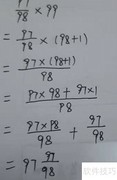 97/98 × 99
= 97/98 × (98+1)
= 97×(98+1)/98
= 97×98+97×1/98
= 97×98/98 + 97/98
= 97 97/98
软件技巧